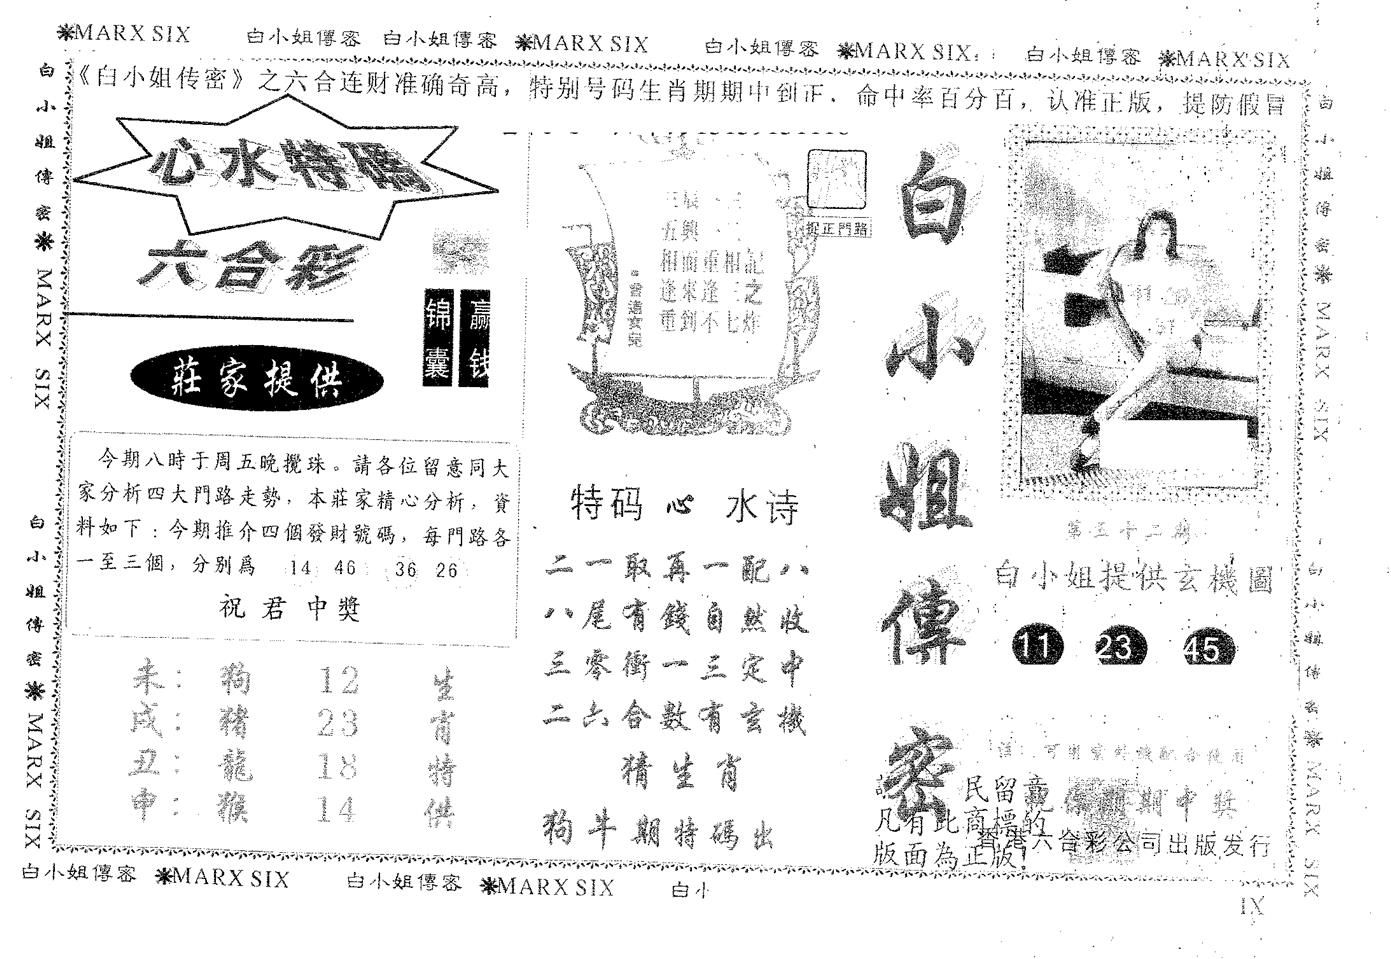 ❋MARX SIX 白小姐傳密 白小姐傳密 ❋MARX SIX 白小姐傳密 ❋MARX SIX 白小姐傳密 ❋MARX SIX
《白小姐传密》之六合连财准确奇高，特别号码生肖期期中到正．命中率百分百，认准正版，提防假冒
白小姐傳密❋MARX SIX
白小姐傳密❋MARX SIX
心水特碼
六合彩
锦囊
赢钱
莊家提供
今期八時于周五晚攪珠。請各位留意同大
家分析四大門路走勢，本莊家精心分析，資
料如下：今期推介四個發財號碼，每門路各
一至三個，分別爲 14 46 36 26
祝君中獎
未：狗 12 生
戌：猪 23 肖
丑：龍 18 特
申：猴 14 供
捉正門路
相而重相記
逢來逢三之
重到不七炸
曾道女兒
特码 心 水诗
二一取再一配八
八尾有錢自然收
三零衝一三定中
二六合數有玄機
猜生肖
狗牛期特碼出
白小姐傳密
第三十二期
白小姐提供玄機圖
11 23 45
民留意
凡有此商標的
版面為正版!
期中獎
香港六合彩公司出版发行
白小姐傳密❋MARX SIX
白小姐傳密❋MARX SIX
白小姐傳密 ❋MARX SIX 白小姐傳密 ❋MARX SIX 白小
IX